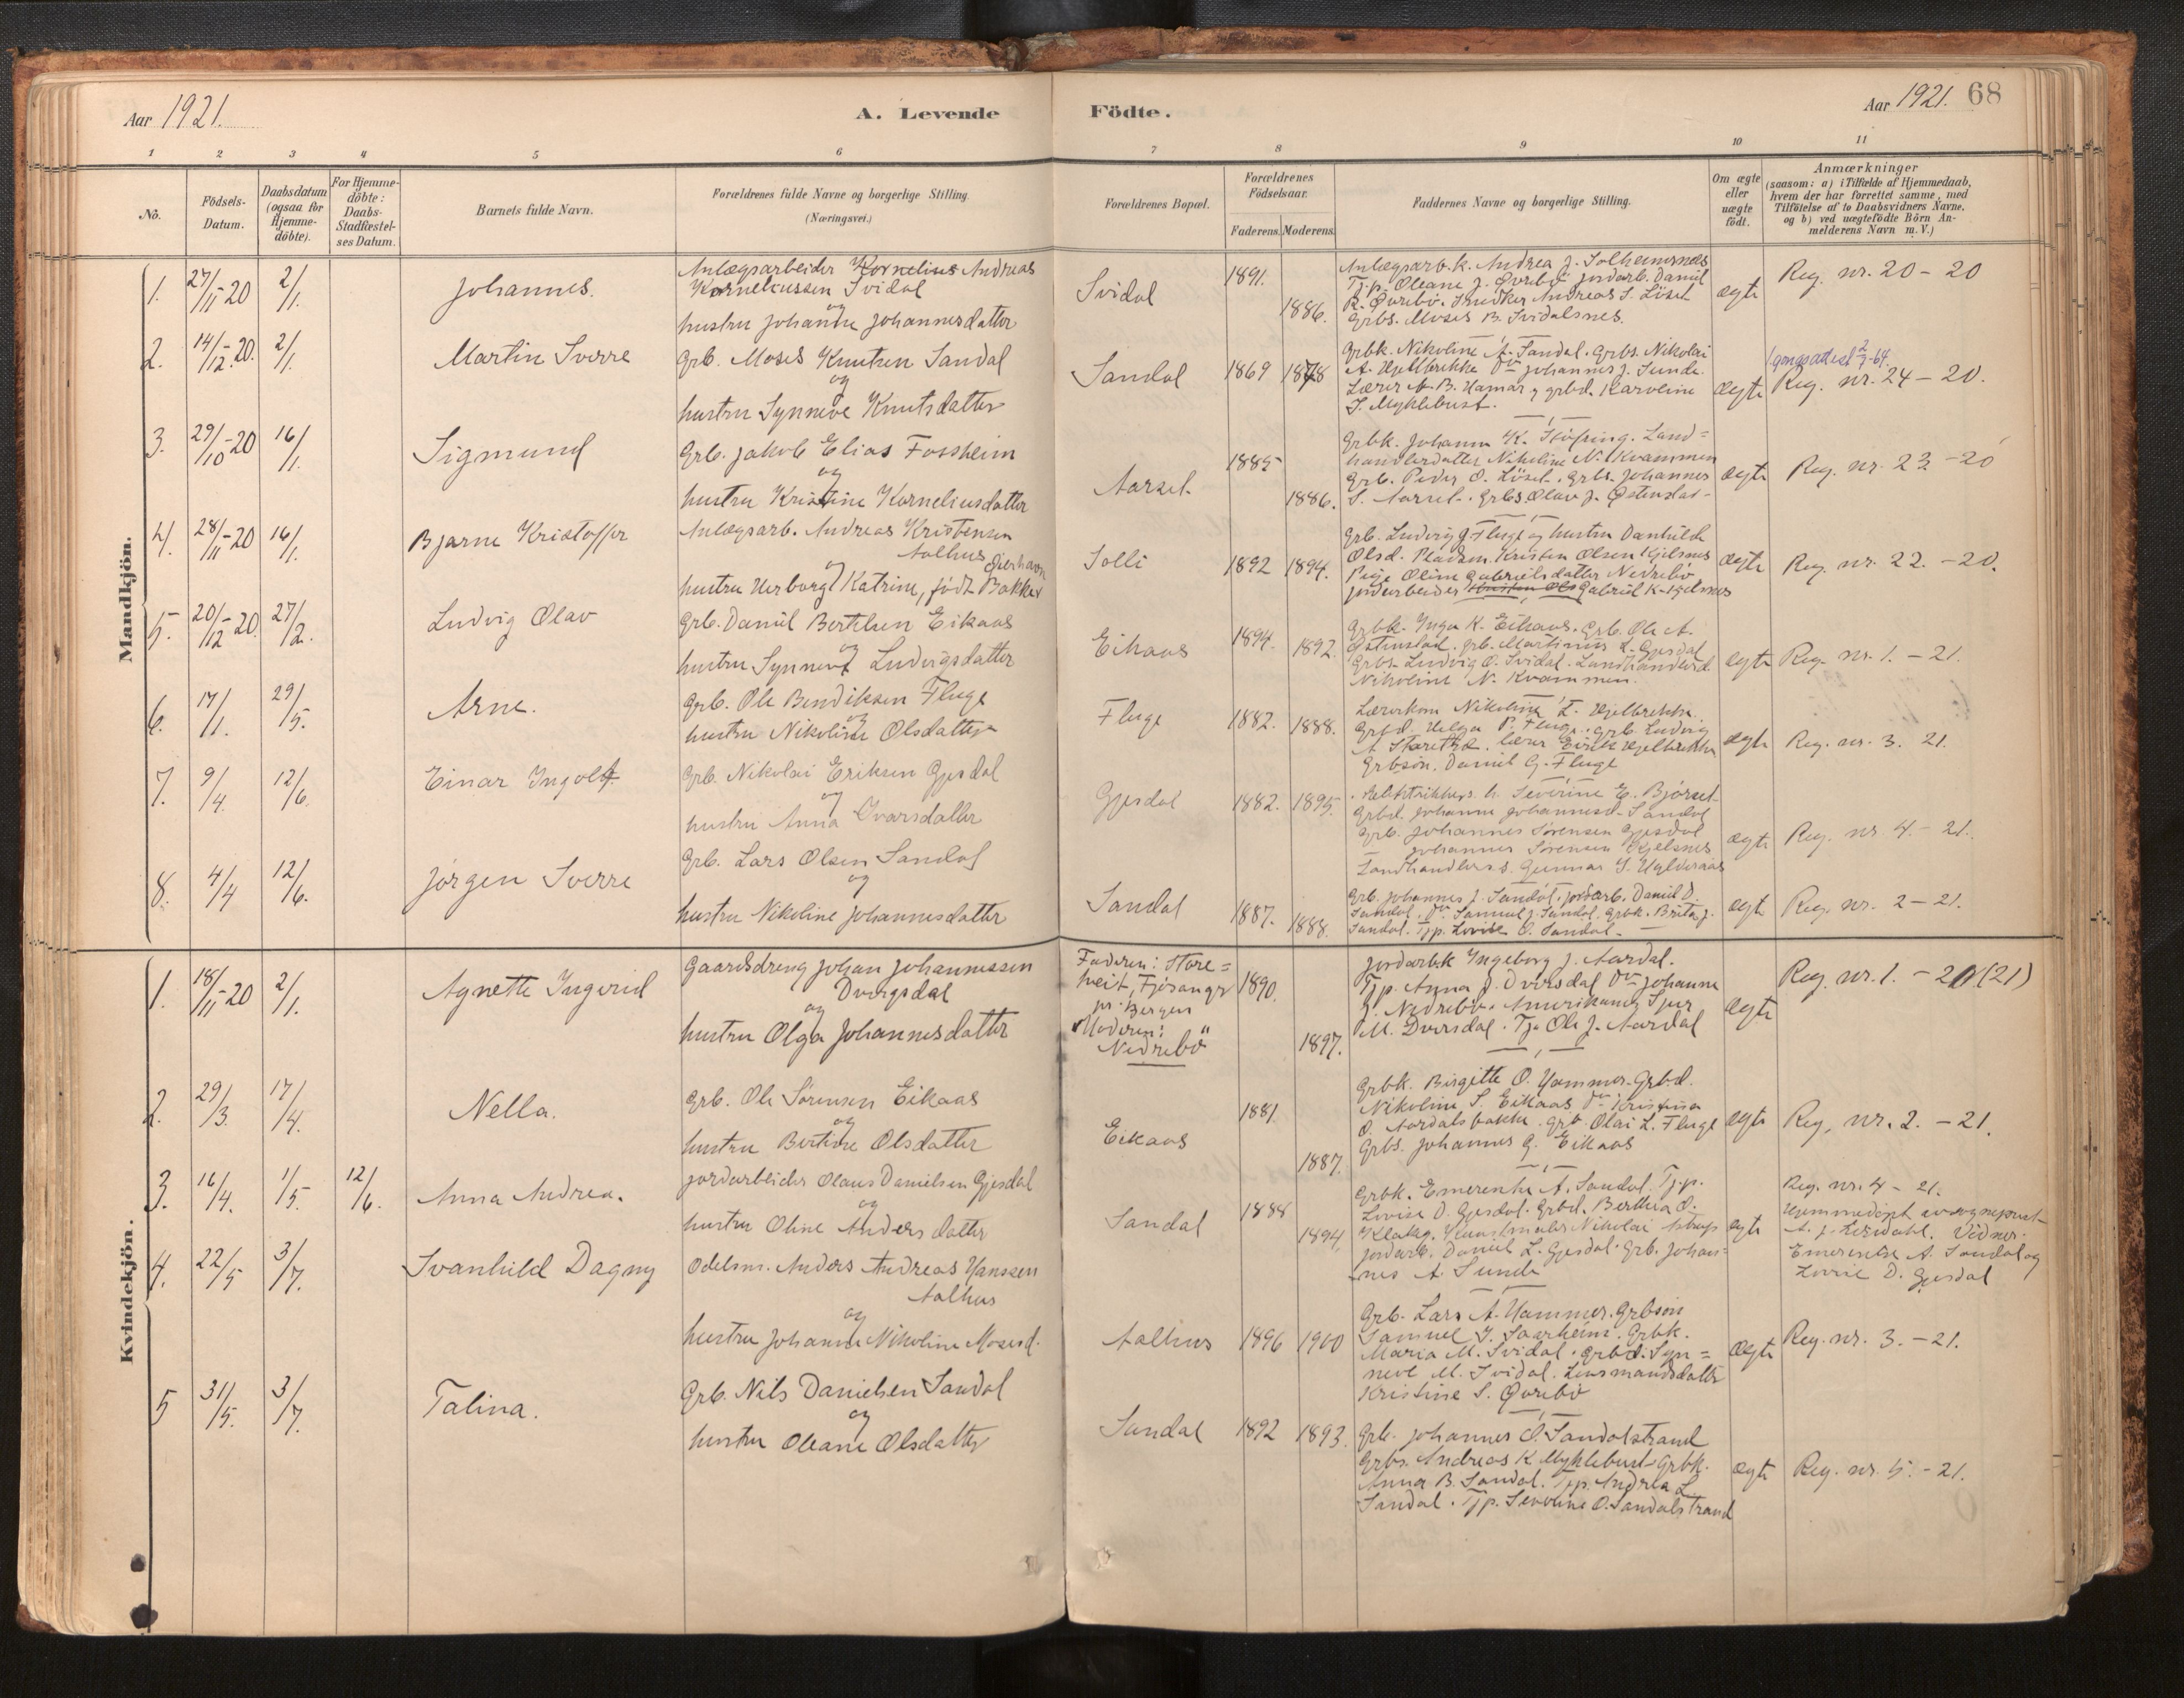 Aar 1921.
A. Levende Födte.
Aar 1921. 68
1 2 3 4 5 6 7 8 9 10 11
No.
Födsels-Datum.
Daabsdatum (ogsaa for Hjemme-döbte).
For Hjemme-döbte: Daabs-Stadfæstel-ses Datum.
Barnets fulde Navn.
Forældrenes fulde Navne og borgerlige Stilling. (Næringsvei.)
Forældrenes Bopæl.
Forældrenes Födselsaar.
Faderens. Moderens.
Faddernes Navne og borgerlige Stilling.
Om ægte eller uægte födt.
Anmærkninger
(saasom: a) i Tilfælde af Hjemmedaab,
hvem der har forrettet samme, med
Tilföielse af to Daabsvidners Navne.
og b) ved uægtefödte Börn An-
melderens Navn m.V.)
Mandkjön.
1. 27/11-20 2/1. Johannes.
Anlægsarbeider Kornelius Andreas
Korneliussen Svidal
og
hustru Johanne Johannesdatter
Svidal 1891. 1886.
Anlægsarb.k. Andrea J. Solheimsnes
Tjp. Oleane J. Øvrebö jordarb. Daniel
R. Øvrebö. Snedker Andreas S. Löset
Grbs. Moses B. Svidalsnes.
ægte
Reg. nr. 20 - 20
2. 14/12-20. 2/1. Martin Sverre
Grb. Moses Knutsen Sandal
og
hustru Synneve Knutsdatter
Sandal 1869 1878
Grbk. Nikoline A. Sandal. Grbs. Nikolai
A. Hjelbrekke Do Johannes J. Sunde.
Lærer A. B. Hamar, grbd. Karoline
S. Myklebust.
ægte
Reg. nr. 24 - 20.
3. 29/10-20 16/1. Sigmund
Grb. Jakob Elias Fossheim
og
hustru Kristine Korneliusdatter
Aarset 1885 1886.
Grbk. Johanne K. Stöfring. Land=
handlerdatter Nikoline N. Kvammen
Grb. Peder O. Löset. Grbs. Johannes
S. Aarset. Grbs Olav J. Østenstad
ægte
Reg. nr. 23 - 20
4. 28/11-20 16/1. Bjarne Kristoffer
Anlægsarb. Andreas Kristensen
Aalhus
og
hustru Herborg Katrine, födt Bakke
Solli 1892 1894.
Grb. Ludvig J. Fluge og hustru Danhilde
Olsd. Pladsm. Kristen Olsen Kjelsnes
Pige Oline Gabrielsdatter Nedrebö
jordarbeider Gabriel K. Kjelsnes
ægte
Reg. nr. 22. - 20.
5. 20/12-20. 27/2. Ludvig Olav
Grb. Daniel Bertelsen Eikaas
og
hustru Synneve Ludvigsdatter
Eikaas 1894. 1892.
Grbk. Inga K. Eikaas. Grb. Ole A.
Østenstad. grb. Martinus L. Gjesdal
Grbs. Ludvig O. Svidal. Landhandlerd.
Nikoline N. Kvammen.
ægte
Reg. nr. 1. - 21.
6. 17/1. 29/5. Arne.
Grb. Ole Bendiksen Fluge
og
hustru Nikoline Olsdatter
Fluge 1882. 1888.
Lærerkone Nikoline L. Hjelbrekke.
Grbd. Helga P. Fluge. grb. Ludvig
A. lærer Eirik Hjelbrekke
Grbsön. Daniel G. Fluge
ægte
Reg. nr. 3. 21.
7. 9/4. 12/6. Einar Ingolf.
Grb. Nikolai Eriksen Gjesdal
og
hustru Anna Ivarsdatter
Gjesdal 1882. 1895.
Severine E. Björset
Grbd. Johanne Johannesd. Sandal
Grb. Johannes Sörensen Gjesdal
Johannes Sörensen Kjelsnes
Landhandlers. Gunnar S. Ugelveraas
ægte
Reg. nr. 4. - 21.
8. 4/4 12/6. Jörgen Sverre
Grb. Lars Olsen Sandal
og
hustru Nikoline Johannesdatter
Sandal 1887. 1888.
Grb. Johannes J. Sandal, jordarb. Daniel D.
Sandal. Do Samuel J. Sandal. Grbk. Brita J.
Sandal. Tjp. Lovise O. Sandal.
ægte
Reg. nr. 2 - 21.
Kvindekjön.
1. 18/11-20 2/1. Agnette Ingerid
Gaardsdreng Johan Johannessen
Dvergsdal
og
hustru Olga Johannesdatter
Faderen: Store=
tveit, Fjösanger
pr. Bergen
Moderen:
Nedrebö
1890. 1897.
Jordarb.k Ingeborg J. Aardal.
Tjp. Anna J. Dversdal Do Johanne
Z. Nedrebö. Amerikaner Sjur
M. Dversdal. Tj. Ole J. Aardal
ægte
Reg. nr. 1. - 20 (21)
2. 29/3. 17/4. Nella.
Grb. Ole Sörensen Eikaas
og
hustru Bertine Olsdatter
Eikaas 1881. 1887.
Grbk. Birgitte O. Hammer. Grbd.
Nikoline S. Eikaas Do Kristina
O. Aardalsbakke. grb. Olai L. Fluge
Grbs. Johannes G. Eikaas
ægte
Reg. nr. 2. - 21.
3. 16/4. 1/5. 12/6. Anna Andrea.
jordarbeider Olaus Danielsen Gjesdal
og
hustru Oline Andersdatter
Sandal 1888 1894.
Grbk. Emerentse A. Sandal. Tjp.
Lovise D. Gjesdal. Grbd. Berthea O.
Klakeg. Kunstmaler Nikolai Astrup
jordarb. Daniel L. Gjesdal. Grb. Johan=
nes A. Sunde
ægte
Reg. nr. 4 - 21.
Hjemmedöpt av sogneprest
Vidner.
Emerentse A. Sandal og
Lovise D. Gjesdal
4. 22/5 3/7. Svanhild Dagny
Odelsm. Anders Andreas Hanssen
Aalhus
og
hustru Johanne Nikoline Mosesd.
Aalhus 1896 1900
Grb. Lars A. Hammer. Grbsön
Samuel J. Saarheim. Grbk.
Maria M. Svidal. Grbd. Syn=
neve M. Svidal. Lensmandsdatter
Kristine S. Øvrebö
ægte
Reg. nr. 3. - 21.
5 31/5. 3/7. Talina.
Grb. Nils Danielsen Sandal
og
hustru Oleane Olsdatter
Sandal 1892 1893.
Grb. Johannes O. Sandalstrand
Grbs. Andreas K. Myklebust. Grbk.
Anna B. Sandal. Tjp. Andrea L.
Sandal. Tjp. Severine O. Sandalstrand
ægte
Reg. nr. 5. - 21.